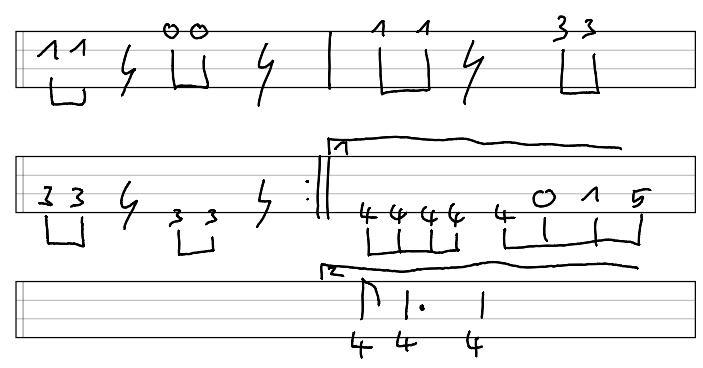 1 1 0 0 1 1 3 3
1
3 3 3 3 4 4 4 4 4 0 1 5
2
4 4 4